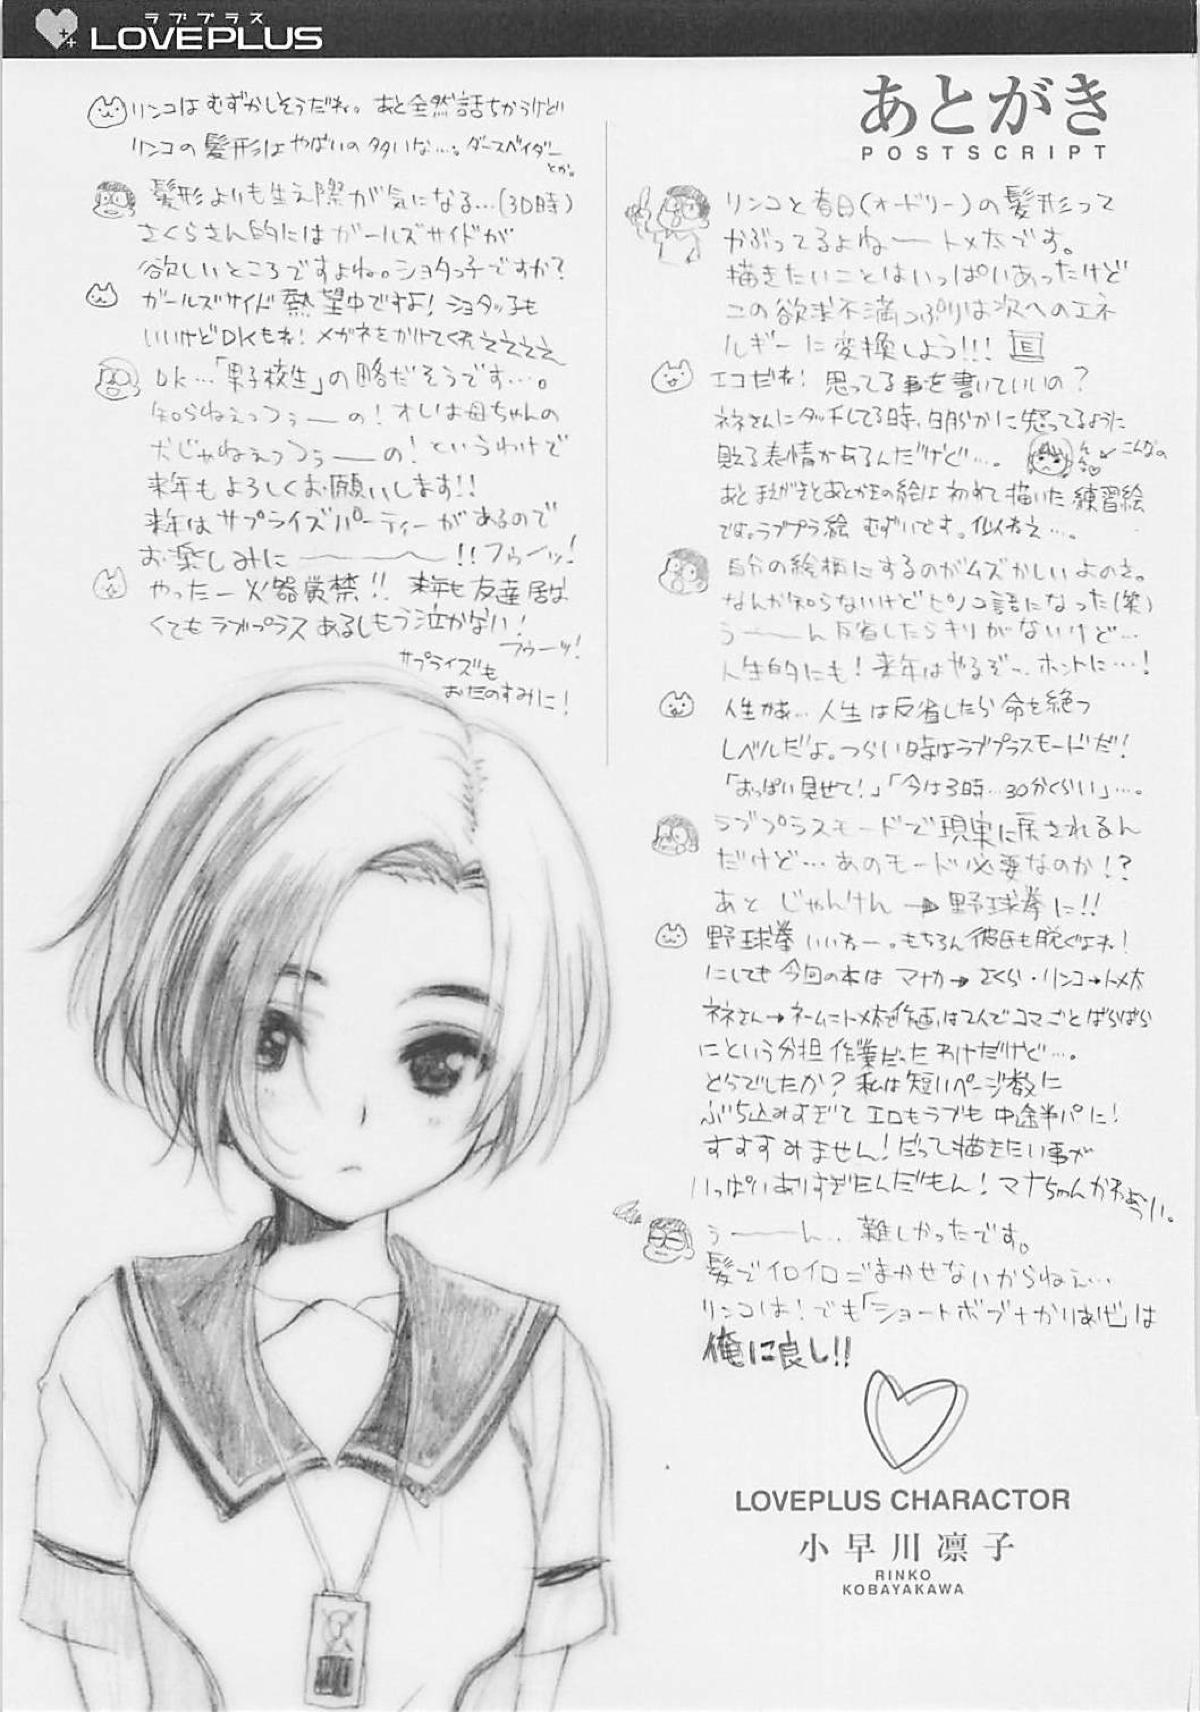 ラブプラス
LOVEPLUS
あとがき
POSTSCRIPT
リンコと春日(オードリー)の髪形って
かぶってるよねートメ太です。
描きたいことはいっぱいあったけど
この欲求不満っぷりは次へのエネ
ルギーに変換しよう!!!
エコだね! 思ってる事を書いていいの?
ネネさんにタッチしてる時、明らかに怒ってるように
見える表情があるんだけど…。
こんなの
あとまえがきとあとがきの絵は初めて描いた練習絵
です。ラブプラ絵むずいです。似ねえ…。
自分の絵柄にするのがムズかしいよのさ。
なんか知らないけどピノコ語になった(笑)
うーーん反省したらキリがないけど…
人生的にも!来年はやるぞー、ホントに…!
人生かぁ…人生は反省したら命を絶つ
レベルだよ。つらい時はラブプラスモードだ!
「おっぱい見せて!」「今は3時…30分くらい」…。
ラブプラスモードで現実に戻されるん
だけど…あのモード必要なのか!?
あと じゃんけん→野球拳に!!
野球拳いいねー。もちろん彼氏も脱ぐよね!
にしても今回の本は マナカ→さくら・リンコ→トメ太
ネネさん→ネームニトメ太、作画は2人でコマごとばらばら
にという分担作業だったわけだけど…。
どうでしたか? 私は短いページ数に
ぶち込みすぎて エロもラブも 中途半パに!
すすすみません!だって描きたい事が
いっぱいありすぎたんだもん! マナちゃんかわぁうい。
うーーん… 難しかったです。
髪でイロイロごまかせないからねぇ…
リンコは!でも「ショートボブナナかりあげ」は
俺に良し!!
LOVEPLUS CHARACTOR
小早川凛子
RINKO
KOBAYAKAWA
リンコはむずかしそうだね。あと全然話ちがうけど
リンコの髪形はやばいの多いな…。ダースベイダー
とか。
髪形よりも生え際が気になる…(3D時)
さくらさん的にはガールズサイドが
欲しいところですよね。ショタっ子ですか?
ガールズサイド熱望中ですよ! ショタッ子も
いいけどDKもね! メガネをかけてくれええええ
DK…「男子校生」の略だそうです…。
知らねえっつぅーの!オレは母ちゃんの
犬じゃねえっつぅーの!というわけで
来年もよろしくお願いします!!
来年はサプライズパーティーがあるので
お楽しみに〜〜〜!!フゥーッ!
やったー火器厳禁!! 来年も友達居な
くてもラブプラスあるしもう泣かない!
フゥーッ!
サプライズも
おたのすみに!